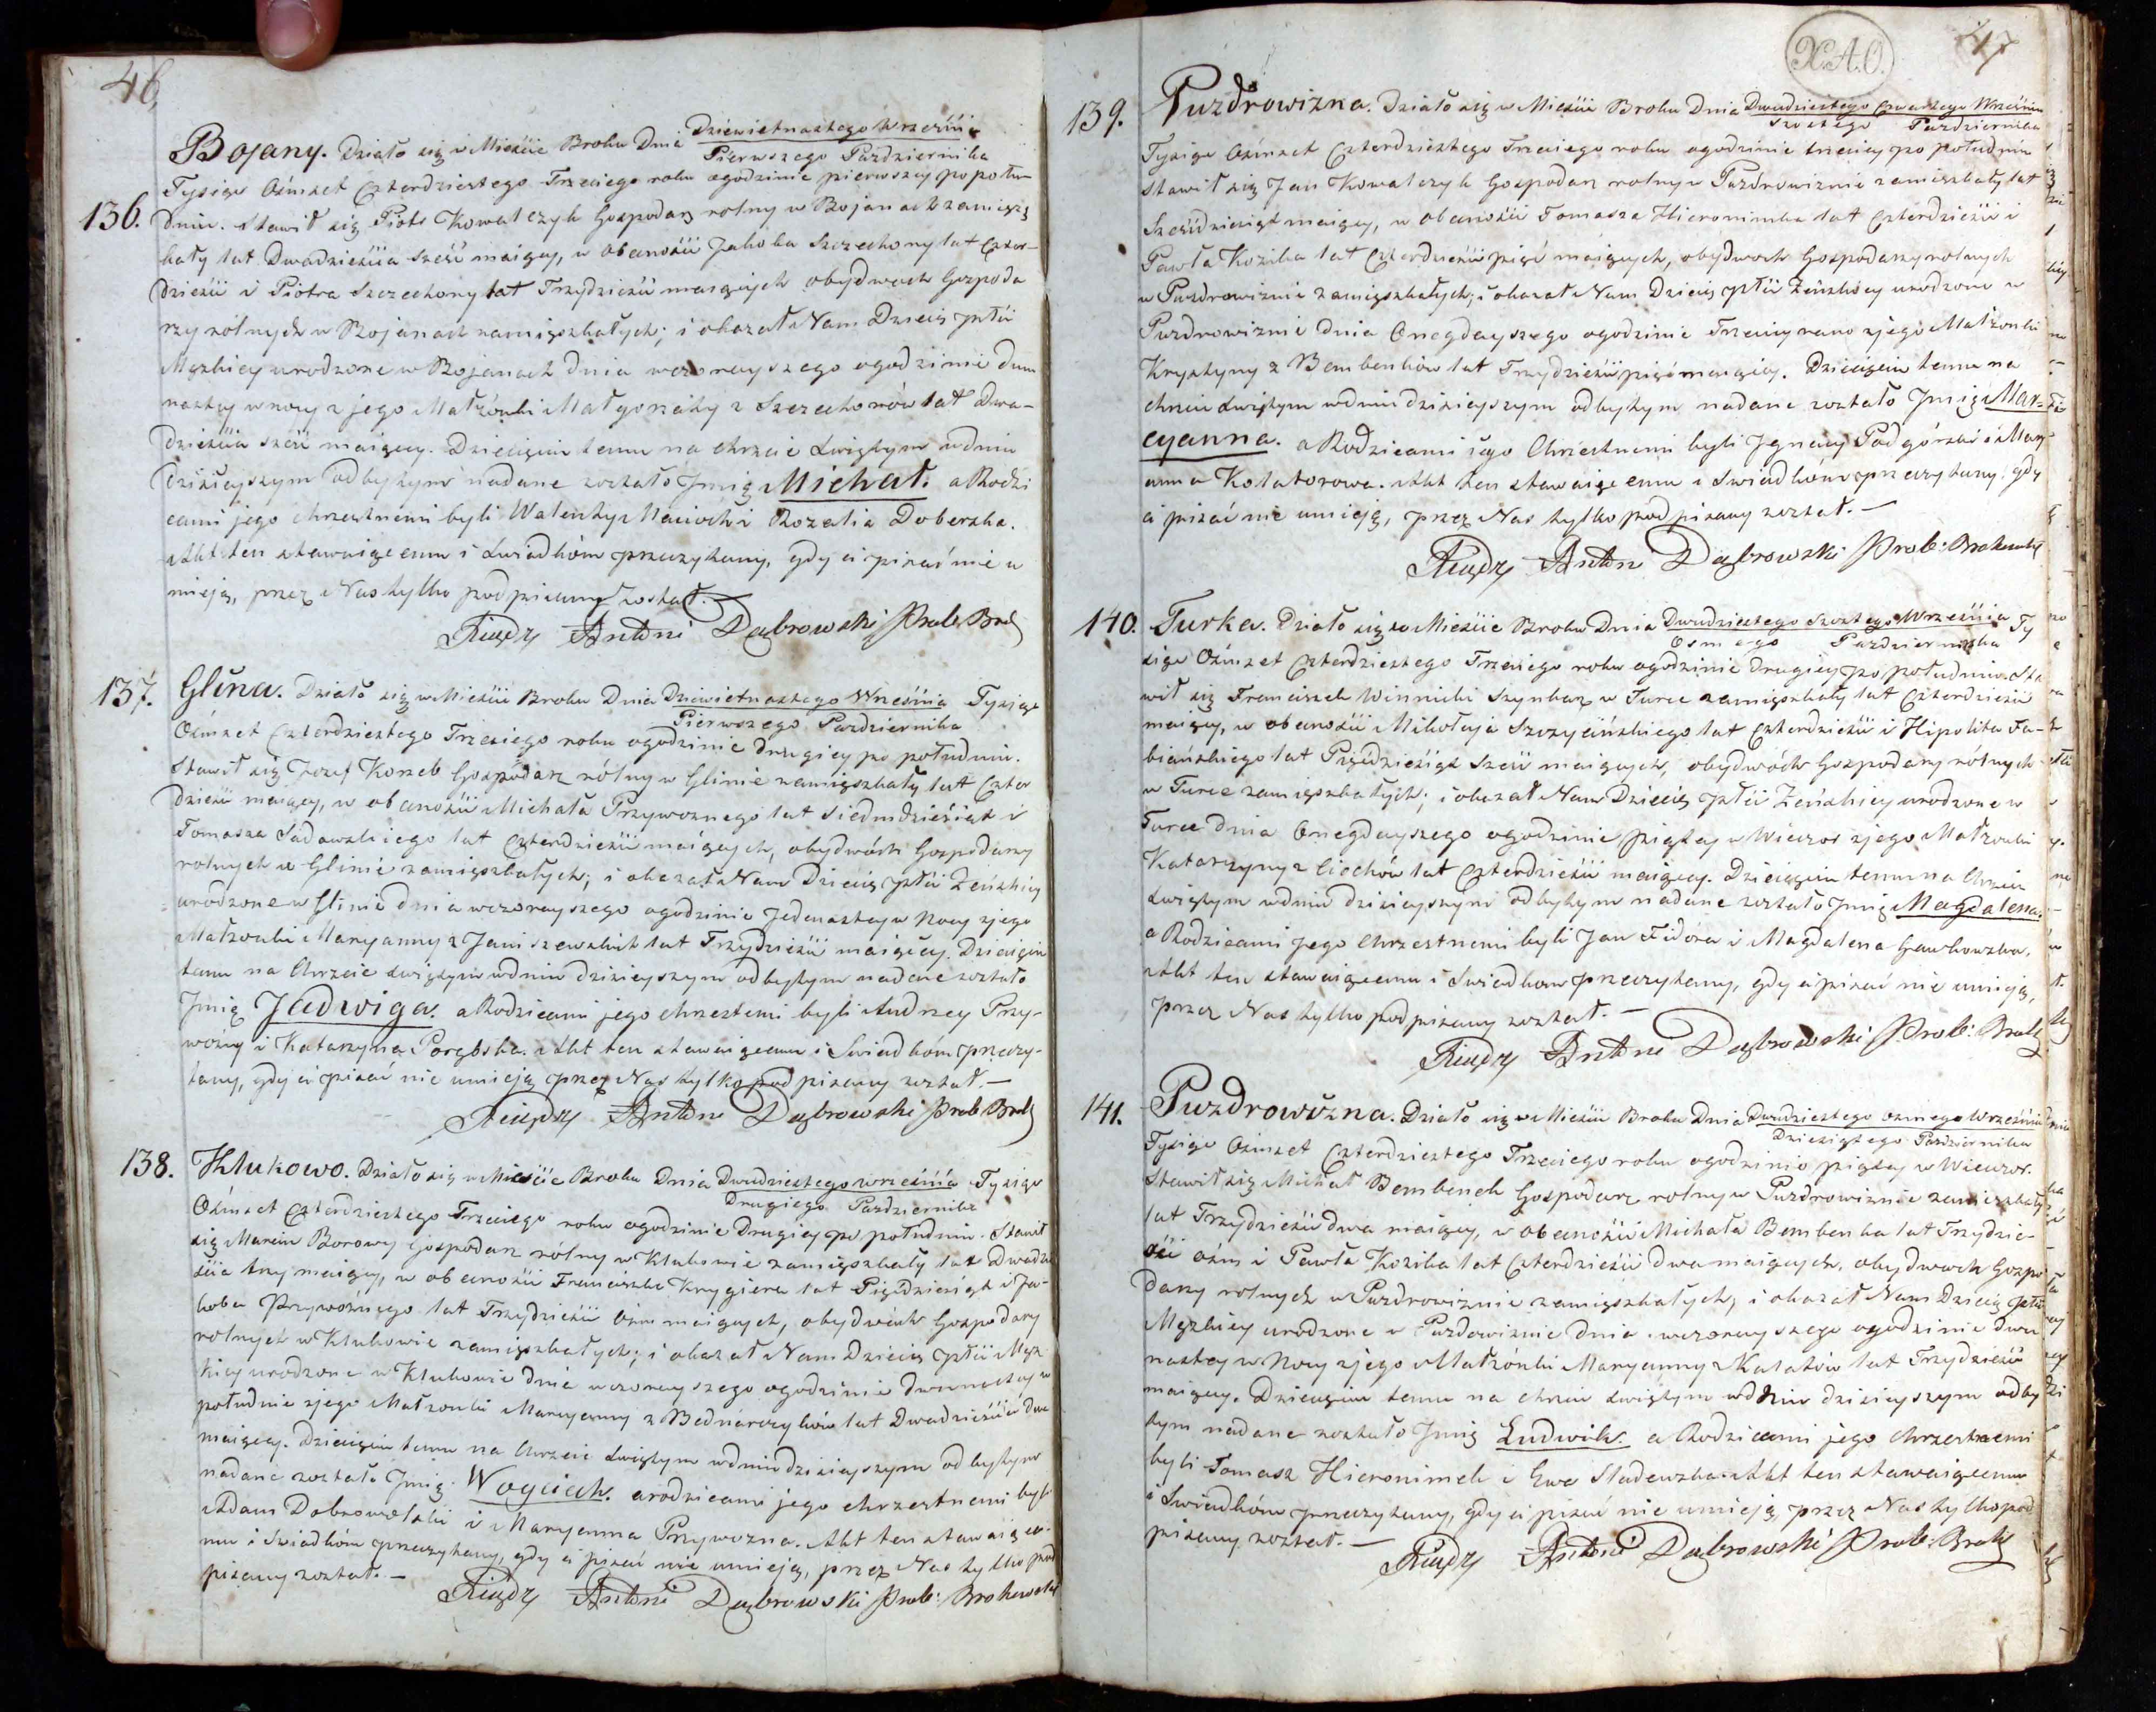 46,
Bojany. Działo się w Mieście Broku Dnia Dziewietnastego Września
Pierwszego Października
Tysiąc Ośmset Czterdziestego Trzeciego roku ogodzinie pierwszey popołu-
136. dniu. Stawił się Piotr Kowalczyk Gospodarz rolny w Bojanach zamiesz
kały lat Dwadzieścia sześć maiący, w obecności Jakoba Szczechony lat Czter-
dzieści i Piotra Szczechony lat Trzydzieści maiących obydwoch Gospoda
rzy rólnych w Bojanach zamięszkałych; i okazał Nam Dziecię płci
Męzkiey urodzone w Bojanach dnia wczorayszego ogodzinie dwu
nastey w nocy z jego Małżonki Małgorzaty z Szczechonów lat Dwa-
dzieścia sześć maiącey. Dziecięciu temu na chrzcie świętym w dniu
dzisieyszym odbytym nadane zostało Jmię Michał. a Rodzi
cami jego chrzestnemi byli Walenty Maciock i Rozalia Doberska.
Akt ten stawaiącemu i świadkóm przeczytany, gdy ci pisać nie u
mieją, przez Nas tylko podpisany został.
Xiądz Antoni Dąbrowski Prob. Brok
137. Glina. Działo się w Mieście Broku Dnia Dziewietnastego Września Tysiąc
Pierwszego Października
Ośmset Czterdziestego Trzeciego roku ogodzinie drugiey po południu.
Stawił się Jozef Korzeb Gospodarz rólny w Glinie zamięszkały lat Czter
dzieści maiący, w obecności Michała Przywoznego lat Siedmdzieśiąt i
Tomasza Sadowskiego lat Czterdzieści maiących, obydwóch Gospodarzy
rolnych w Glinie zamięszkałych; i okazał Nam Dziecię płci Żeńskiey
urodzone w Glinie dnia wczorayszego ogodzinie Jedenastey w Nocy z jego
Małżonki Maryanny z Janiszewskich lat Trzydzieści maiącey. Dziecięciu
temu na Chrzcie świętym w dniu dzisieyszym odbytym nadane zostało
Jmię Jadwiga. a Rodzicami jego chrzestemi byli Andrzey Przy-
wózny i Katarzyna Porębska. Akt ten stawaiącemu i Świadkóm przeczy-
tany, gdy ci pisać nie umieją przez Nas tylko podpisany został.-
Xiądz Antoni Dąbrowski Prob. Brok
138. Klukowo. Działo się w Mieście Broku Dnia Dwudziestego września Tysiąc
Drugiego Października
Ośmset Czterdziestego Trzeciego roku ogodzinie Drugiey po południu. Stawił
się Marcin Borowy Gospodarz rólny w Klukowie zamięszkały lat Dwadzie
ścia trzy maiący, w obecności Franciszka Krygiera lat Pięćdziesiąt i Ja-
koba Przywóznego lat Trzydzieści ośm maiących, obydwóch Gospodarzy
rolnych w Klukowie zamięszkałych; i okazał Nam Dziecię płci Męz
kiey urodzone w Klukowie dnia wczorayszego ogodzinie dwunastey w
południe z jego Małżonki Maryanny z Bednarczyków lat Dwadzieścia dwa
maiącey. Dziecięciu temu na Chrzcie świętym w dniu dzisieyszym odbytym
nadane zostało Jmię Woyciech. a rodzicami jego chrzestnemi byli
Adam Dobrowolski i Maryanna Przywozna. Akt ten stawaiące-
mu i świadkóm przeczytany, gdy ci pisać nie umieją, przez Nas tylko pod
pisany został.-
Xiądz Antoni Dąbrowski Prob: Brokowski
X.A.O.
47
139. Puzdrowizna. Działo się w Mieście Broku Dnia Dwudziestego Czwartego Września
Szostego Października
Tysiąc Ośmset Czterdziestego Trzeciego roku ogodzinie trzeciey po południu
stawił się Jan Kowalczyk Gospodarz rolny w Puzdrowiznie zamięszkały lat
Sześćdziesiąt maiący, w obecności Tomasza Hieronimka lat Czterdzieści i
Pawła Kozika lat Czterdzieści pięć maiących, obydwoch Gospodarzy rolnych
w Puzdrowiznie zamięszkałych; i okazał Nam Dziecię płci Żeńskiey urodzone w
Puzdrowiznie dnia Onegdayszego ogodzinie Trzeciey rano z jego Małżonki
Krystyny z Bembenków lat Trzydzieści pięć maiącey. Dziecięciu temu na
chrzcie świętym w dniu dzisieyszym odbytym nadane zostało Jmię Mar-
cyanna. a Rodzicami iego Chrzestnemi byli Jgnacy Podgórski i Mary
anna Kolatorowa. Akt ten stawaiącemu i Świadkóm przeczytany, gdy
ci pisać nie umieją, przez Nas tylko podpisany został.-
Xiądz Antoni Dąbrowski Prob: Brokowski
140. Turka. Działo się w Mieście Broku Dnia Dwudziestego Szostego Września Ty
Osmego Października
siąc Ośmset Czterdziestego Trzeciego roku ogodzinie drugiey po południu. Sta
wił się Franciszek Winnicki Szynkarz w Turce zamięszkały lat Czterdzieści
maiący, w obecności Mikołaja Szczycińskiego lat Czterdzieści i Hipolita Fa-
biańskiego lat Pięćdziesiąt sześć maiących, obydwóch Gospodarzy rólnych
w Turce zamięszkałych; i okazał Nam Dziecię płci Żeńskiey urodzone w
Turce dnia Onegdayszego ogodzinie piątey w Wieczor z jego Małżonki
Katarzyny z Ciochów lat Czterdzieści maiącey. Dziecięciu temu na Chrzcie
świętym w dniu dzisieyszym odbytym nadane zostało Jmię Magdalena.
a Rodzicami jego Chrzestnemi byli Jan Fidora i Magdalena Gawkowska.
Akt ten stawaiącemu i Świadkom przeczytany, gdy ci pisać nie umieją,
przez Nas tylko podpisany został.-
Xiądz Antoni Dąbrowski Prob: Brok
141. Puzdrowizna. Działo się w Mieście Broku Dnia Dwudziestego osmego Września
Dziesiątego Października
Tysiąc Ośmset Czterdziestego Trzeciego roku ogodzinie piątey w Wieczor.
Stawił się Michał Bembenek Gospodarz rolny w Puzdrowiznie zamieszkały
lat Trzydzieści dwa maiący, w obecności Michała Bembenka lat Trzydzie-
ści ośm i Pawła Kozika lat Czterdzieści dwa maiących, obydwoch Gospo
darzy rolnych w Puzdrowiznie zamięszkałych; i okazał Nam Dziecię płci
Męzkiey urodzone w Puzdowiznie dnia wczorayszego ogodzinie dwu
nastey w Nocy z jego Małżónki Maryanny z Kalatów lat Trzydzieści
maiącey. Dziecięciu temu na chrzcie świętym w dniu dzisieyszym odby
tym nadane zostało Jmię Ludwik. a Rodzicami jego Chrzestnemi
byli Tomasz Hieronimek i Ewa Sladewska. Akt ten stawaiącemu
i Świadkóm przeczytany, gdy ci pisać nie umieją, przez Nas tylko pod
pisany został.-
Xiądz Antoni Dąbrowski Prob: Brok